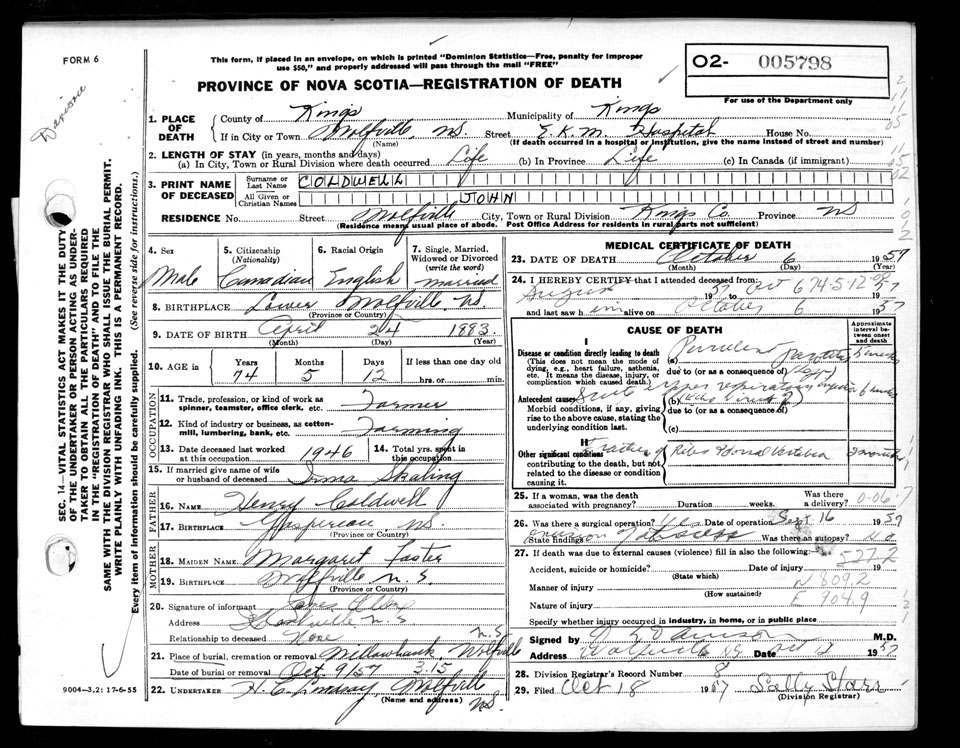 FORM 6
This form, if placed in an envelope, on which is printed "Dominion Statistics—Free, penalty for improper
use $50," and properly addressed will pass through the mail "FREE"
PROVINCE OF NOVA SCOTIA—REGISTRATION OF DEATH
O2- 005798
For use of the Department only
1. PLACE OF DEATH
County of Kings Municipality of Kings
If in City or Town Wolfville, N.S. Street E.K.M. Hospital House No.
(Name) (If death occurred in a hospital or institution, give the name instead of street and number)
2. LENGTH OF STAY (in years, months and days)
(a) In City, Town or Rural Division where death occurred Life (b) In Province Life (c) In Canada (if immigrant)
3. PRINT NAME OF DECEASED
Surname or Last Name COLDWELL
All Given or Christian Names JOHN
RESIDENCE No. Street Wolfville City, Town or Rural Division Kings Co. Province NS
(Residence means usual place of abode. Post Office Address for residents in rural parts not sufficient)
4. Sex Male
5. Citizenship (Nationality) Canadian
6. Racial Origin English
7. Single, Married, Widowed or Divorced (write the word) married
8. BIRTHPLACE Lower Wolfville NS
(Province or Country)
9. DATE OF BIRTH April 24 1883
(Month) (Day) (Year)
10. AGE in Years 74 Months 5 Days 12 If less than one day old hrs. or min.
OCCUPATION
11. Trade, profession, or kind of work as spinner, teamster, office clerk, etc. Farmer
12. Kind of industry or business, as cotton-mill, lumbering, bank, etc. Farming
13. Date deceased last worked at this occupation 1946
14. Total yrs. spent in this occupation
15. If married give name of wife or husband of deceased Irma Skaling
FATHER
16. NAME Henry Coldwell
17. BIRTHPLACE Gaspereau, NS.
(Province or Country)
MOTHER
18. MAIDEN NAME Margaret
19. BIRTHPLACE Wolfville N.S
(Province or Country)
20. Signature of informant
Address N.S
Relationship to deceased None
21. Place of burial, cremation or removal Willowbank, Wolfville N.S.
Date of burial or removal Oct. 9/57 3.15
22. UNDERTAKER H. C. Lindsay Wolfville NS.
(Name and address)
MEDICAL CERTIFICATE OF DEATH
23. DATE OF DEATH October 6 1957
(Month) (Day) (Year)
24. I HEREBY CERTIFY that I attended deceased from:
August 1957 to Oct 6 1957
74-5-12
and last saw him alive on October 6 1957
CAUSE OF DEATH
Approximate interval between onset and death
I
Disease or condition directly leading to death (a) Purulent
(This does not mean the mode of dying, e.g., heart failure, asthenia, etc. It means the disease, injury, or complication which caused death.)
due to (or as a consequence of)
Antecedent causes (b) upper respiratory
Morbid conditions, if any, giving rise to the above cause, stating the underlying condition last.
due to (or as a consequence of)
(c)
II
Other significant conditions contributing to the death, but not related to the disease or condition causing it.
Ribs
25. If a woman, was the death associated with pregnancy? Duration weeks. Was there a delivery?
26. Was there a surgical operation? Yes Date of operation Sept 16 1957
State findings Was there an autopsy? No
27. If death was due to external causes (violence) fill in also the following:
527.2
Accident, suicide or homicide? Date of injury 19
(State which)
Manner of injury N 809.2
(How sustained)
Nature of injury E 904.9
Specify whether injury occurred in industry, in home, or in public place
Signed by M.D.
Address Wolfville NS Date Oct 1957
28. Division Registrar's Record Number 8
29. Filed Oct 18 1957 Sally Starr
(Division Registrar)
SEC. 14—VITAL STATISTICS ACT MAKES IT THE DUTY
OF THE UNDERTAKER OR PERSON ACTING AS UNDER-
TAKER TO OBTAIN ALL THE PARTICULARS REQUIRED
IN THE "REGISTRATION OF DEATH" AND TO FILE THE
SAME WITH THE DIVISION REGISTRAR WHO SHALL ISSUE THE BURIAL PERMIT.
WRITE PLAINLY WITH UNFADING INK. THIS IS A PERMANENT RECORD.
Every item of information should be carefully supplied. (See reverse side for instructions.)
9004-3.2: 17-6-55